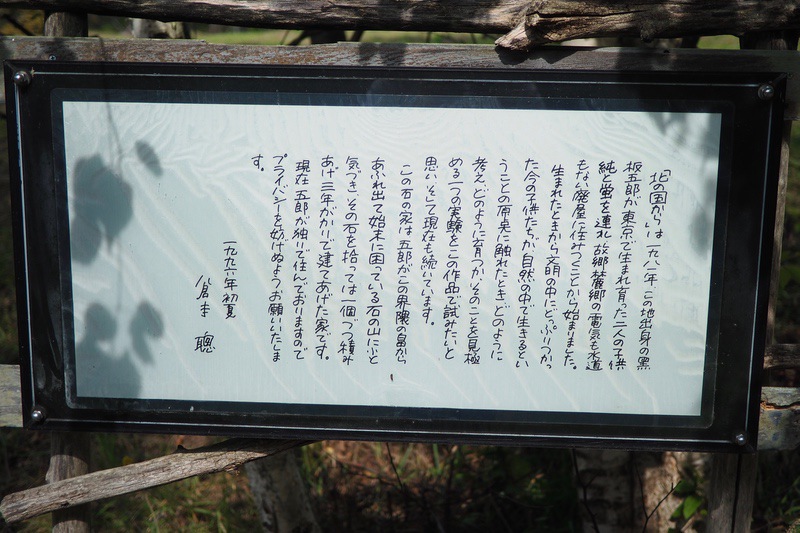 「北の国から」は一九八一年、この地出身の黒
板五郎が東京で生まれ育った二人の子供
純と蛍を連れ、故郷麓郷の電気も水道
もない廃屋に住みつくことから始まりました。
生まれたときから文明の中にどっぷりつかっ
た今の子供たちが、自然の中で生きるとい
うことの原点に触れたとき、どのように
考え、どのように育つか、そのことを見極
める一つの実験をこの作品で試みたいと
思い、そして現在も続いています。
この石の家は、五郎がこの界隈の畠から
あふれ出て始末に困っている石の山にふと
気づき、その石を拾っては一個づつ積み
あげ三年がかりで建てあげた家です。
現在、五郎が独りで住んでおりますので
プライバシーを妨げぬようお願いいたしま
す。
一九九六年 初夏
倉本 聰